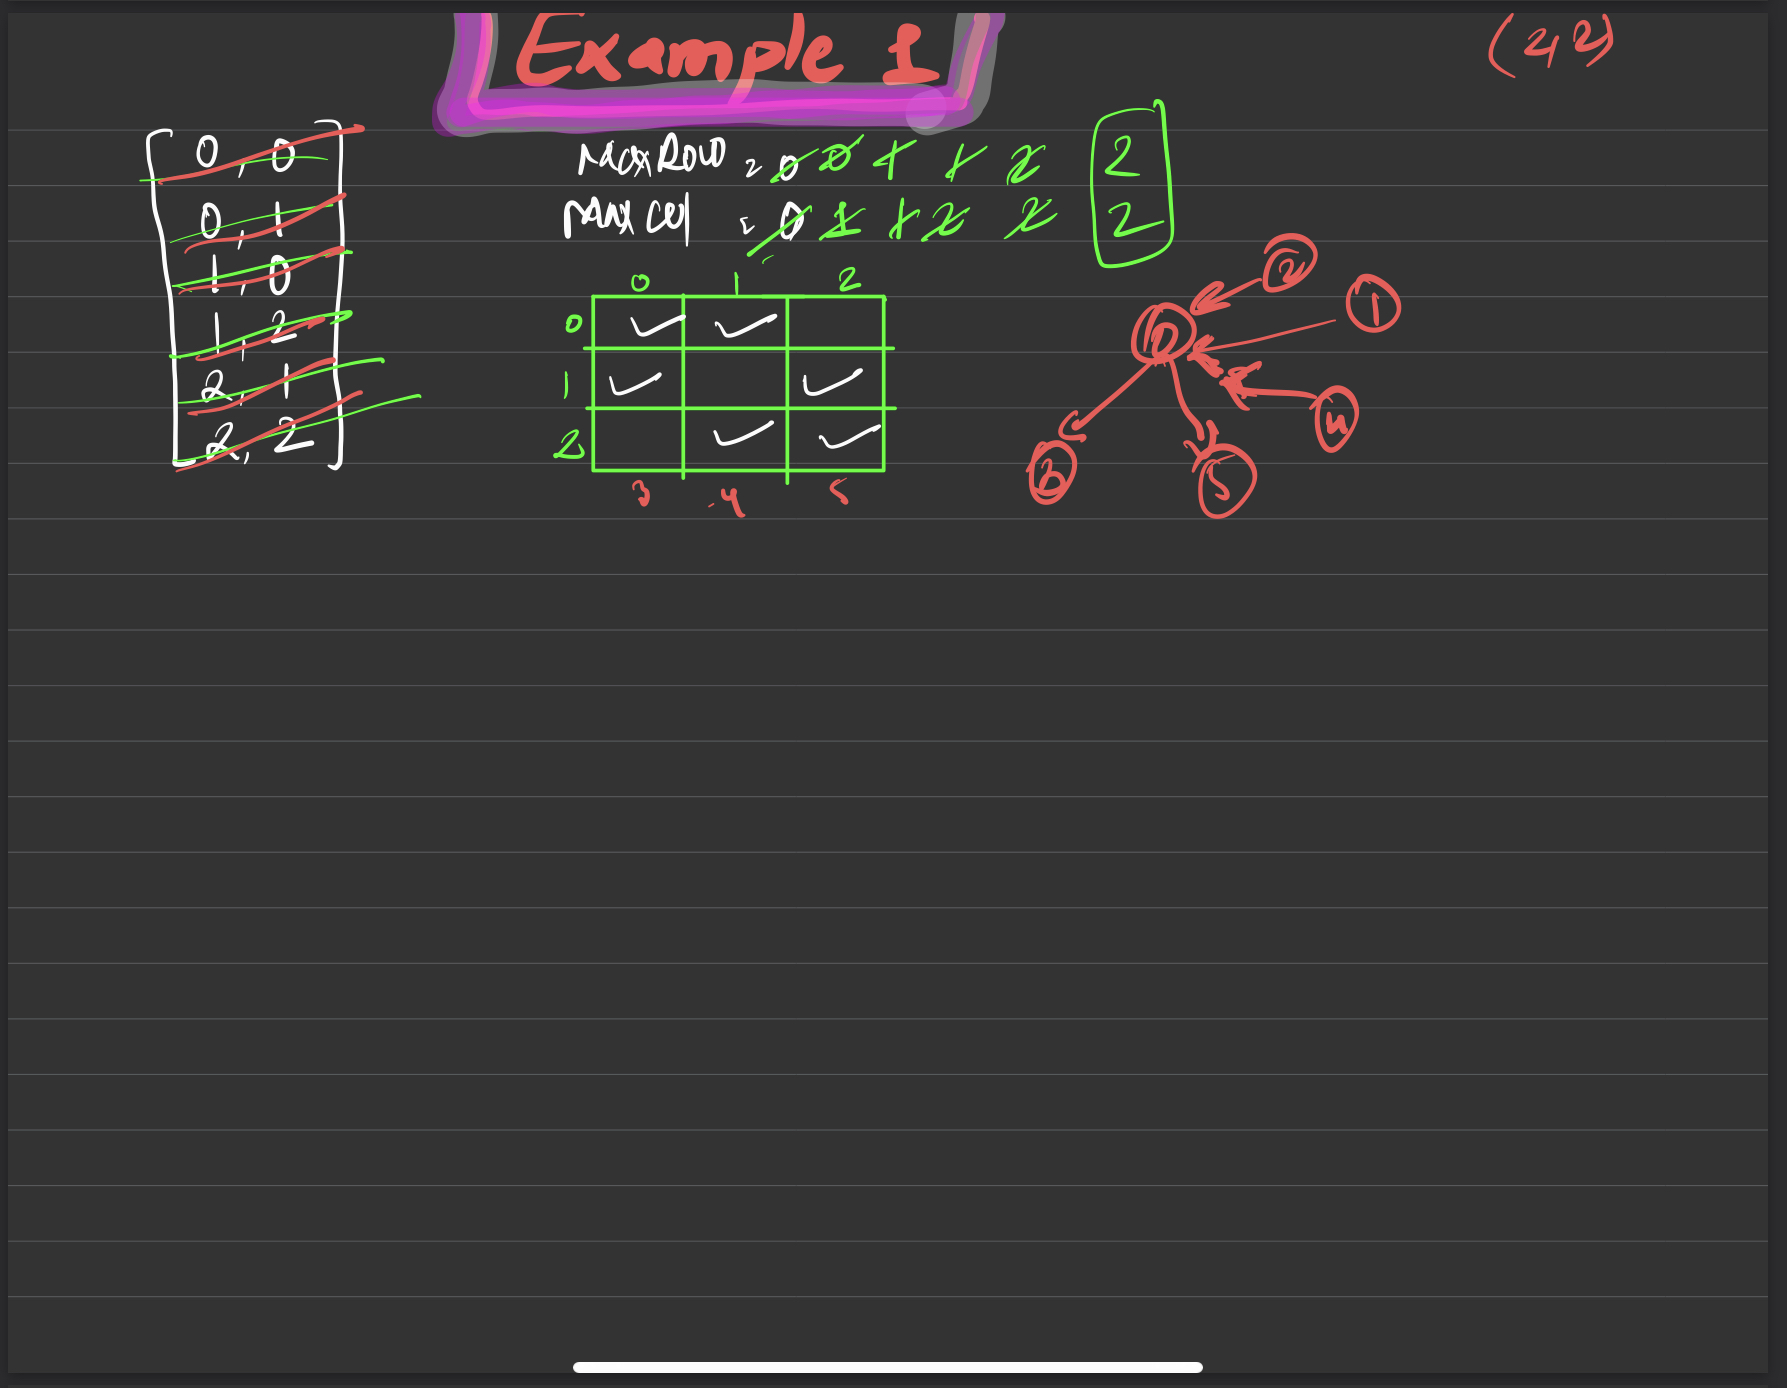 Example 1
(2, 2)
0, 0
0, 1
1, 0
1, 2
2, 1
2, 2
MaxRow = 0 0 1 1 2 2
Max col = 0 1 1 2 2 2
0 1 2
0
1
2
3 4 5
2
1
0
4
3
5